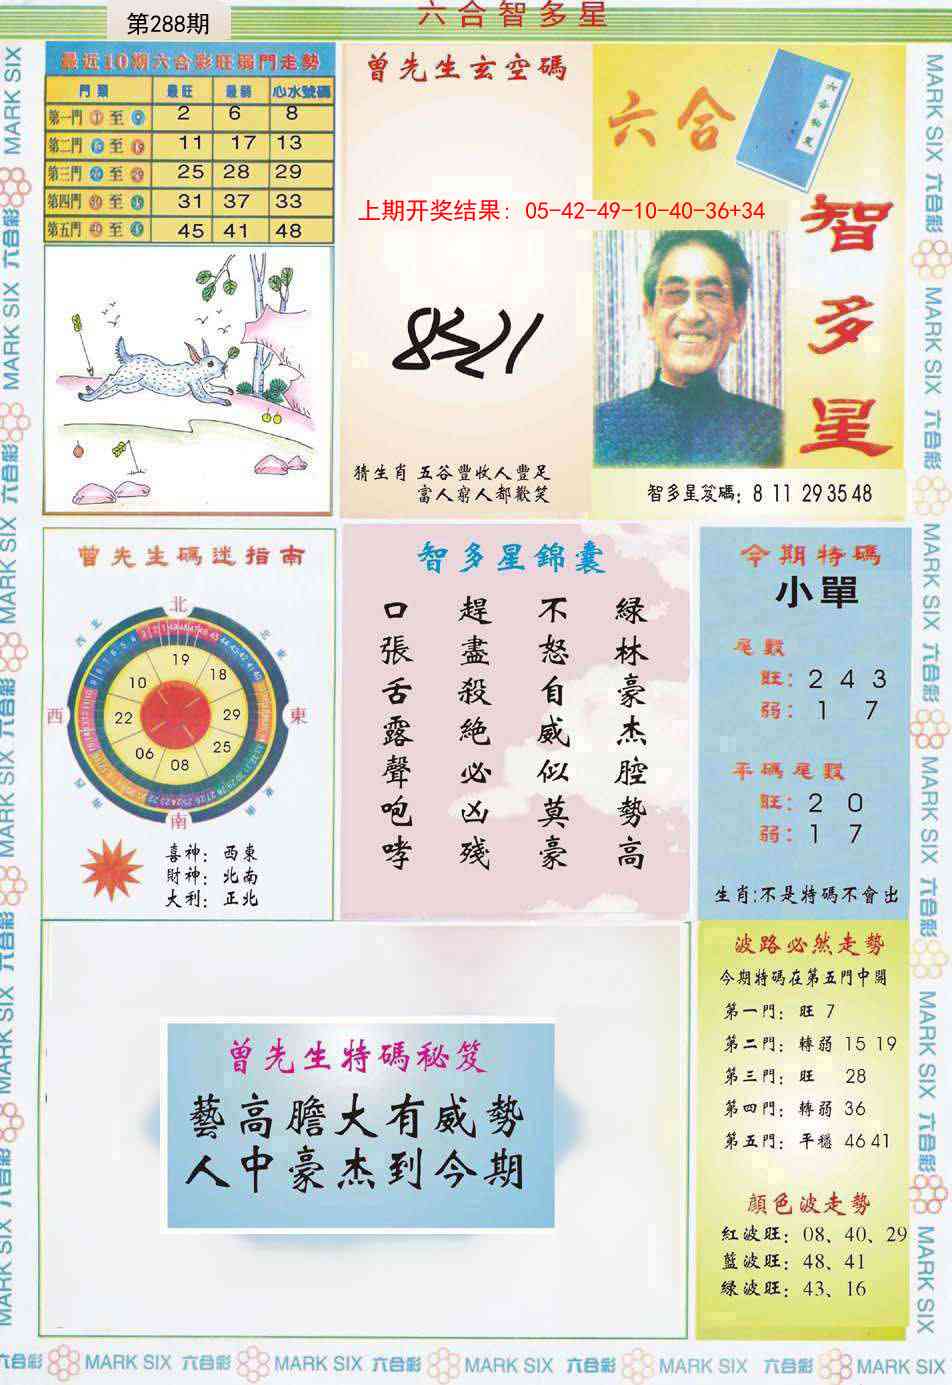 第288期
六合智多星
最近10期六合彩旺弱門走勢
門類 最旺 最弱 心水號碼
第一門 ①至⑨ 2 6 8
第二門 至 11 17 13
第三門 至 25 28 29
第四門 至 31 37 33
第五門 至 45 41 48
曾先生玄空碼
上期开奖结果：05-42-49-10-40-36+34
猜生肖 五谷豐收人豐足
富人窮人都歡笑
六合
智
多
星
智多星笈碼：8 11 29 35 48
曾先生碼迷指南
北
西北
東北
西
東
西南
東南
南
19
18
29
25
08
06
22
10
喜神：西東
財神：北南
大利：正北
智多星錦囊
綠林豪杰腔勢高
不怒自威似莫豪
趕盡殺絕必凶殘
口張舌露聲咆哮
今期特碼
小單
尾數
旺：2 4 3
弱：1 7
平碼尾數
旺：2 0
弱：1 7
生肖:不是特碼不會出
曾先生特碼秘笈
藝高膽大有威勢
人中豪杰到今期
波路必然走勢
今期特碼在第五門中開
第一門：旺 7
第二門：轉弱 15 19
第三門：旺 28
第四門：轉弱 36
第五門：平穩 46 41
顔色波走勢
紅波旺：08、40、29
藍波旺：48、41
綠波旺：43、16
六合彩 MARK SIX 六合彩 MARK SIX 六合彩 MARK SIX 六合彩 MARK SIX 六合彩 MARK SIX